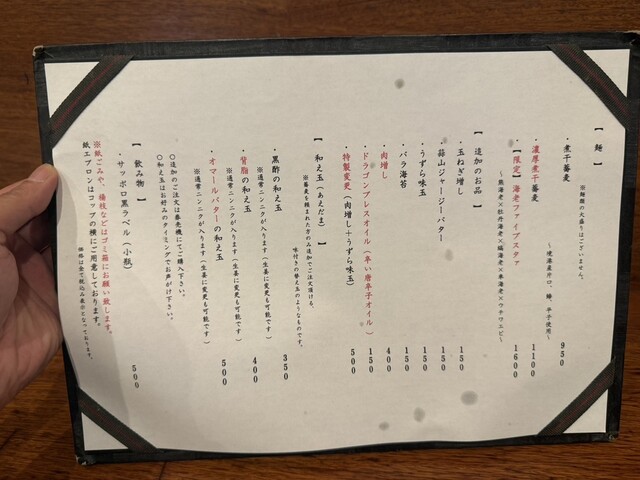 【麺】
※麺類の大盛りはございません。
・煮干蕎麦 950
~境港産片口、鯵、平子使用~
・濃厚煮干蕎麦 1100
・【限定】海老ファイブスター 1600
~熊海老×牡丹海老×縞海老×車海老×ウチワエビ~
【追加のお品】
・玉ねぎ増し 150
・蒜山ジャージーバター 150
・うずら味玉 150
・バラ海苔 150
・肉増し 400
・ドラゴンブレスオイル(辛い唐辛子オイル) 150
・特製変更(肉増し+うずら味玉) 500
【和え玉(あえだま)】
※蕎麦を頼まれた方のみ追加でご注文頂ける、
味付きの替え玉のようなものです。
・黒酢の和え玉 350
※通常ニンニクが入ります(生姜に変更も可能です)
・背脂の和え玉 400
※通常ニンニクが入ります(生姜に変更も可能です)
・オマールバターの和え玉 500
※通常ニンニクが入ります(生姜に変更も可能です)
○追加のご注文は券売機にてご購入下さい。
○和え玉はお好みのタイミングでお声がけ下さい。
【飲み物】
・サッポロ黒ラベル(小瓶) 500
※紙ごみや、楊枝などはゴミ箱にお願い致します。
紙エプロンはコップの横にご用意しております。
価格は全て税込み表示となっております。